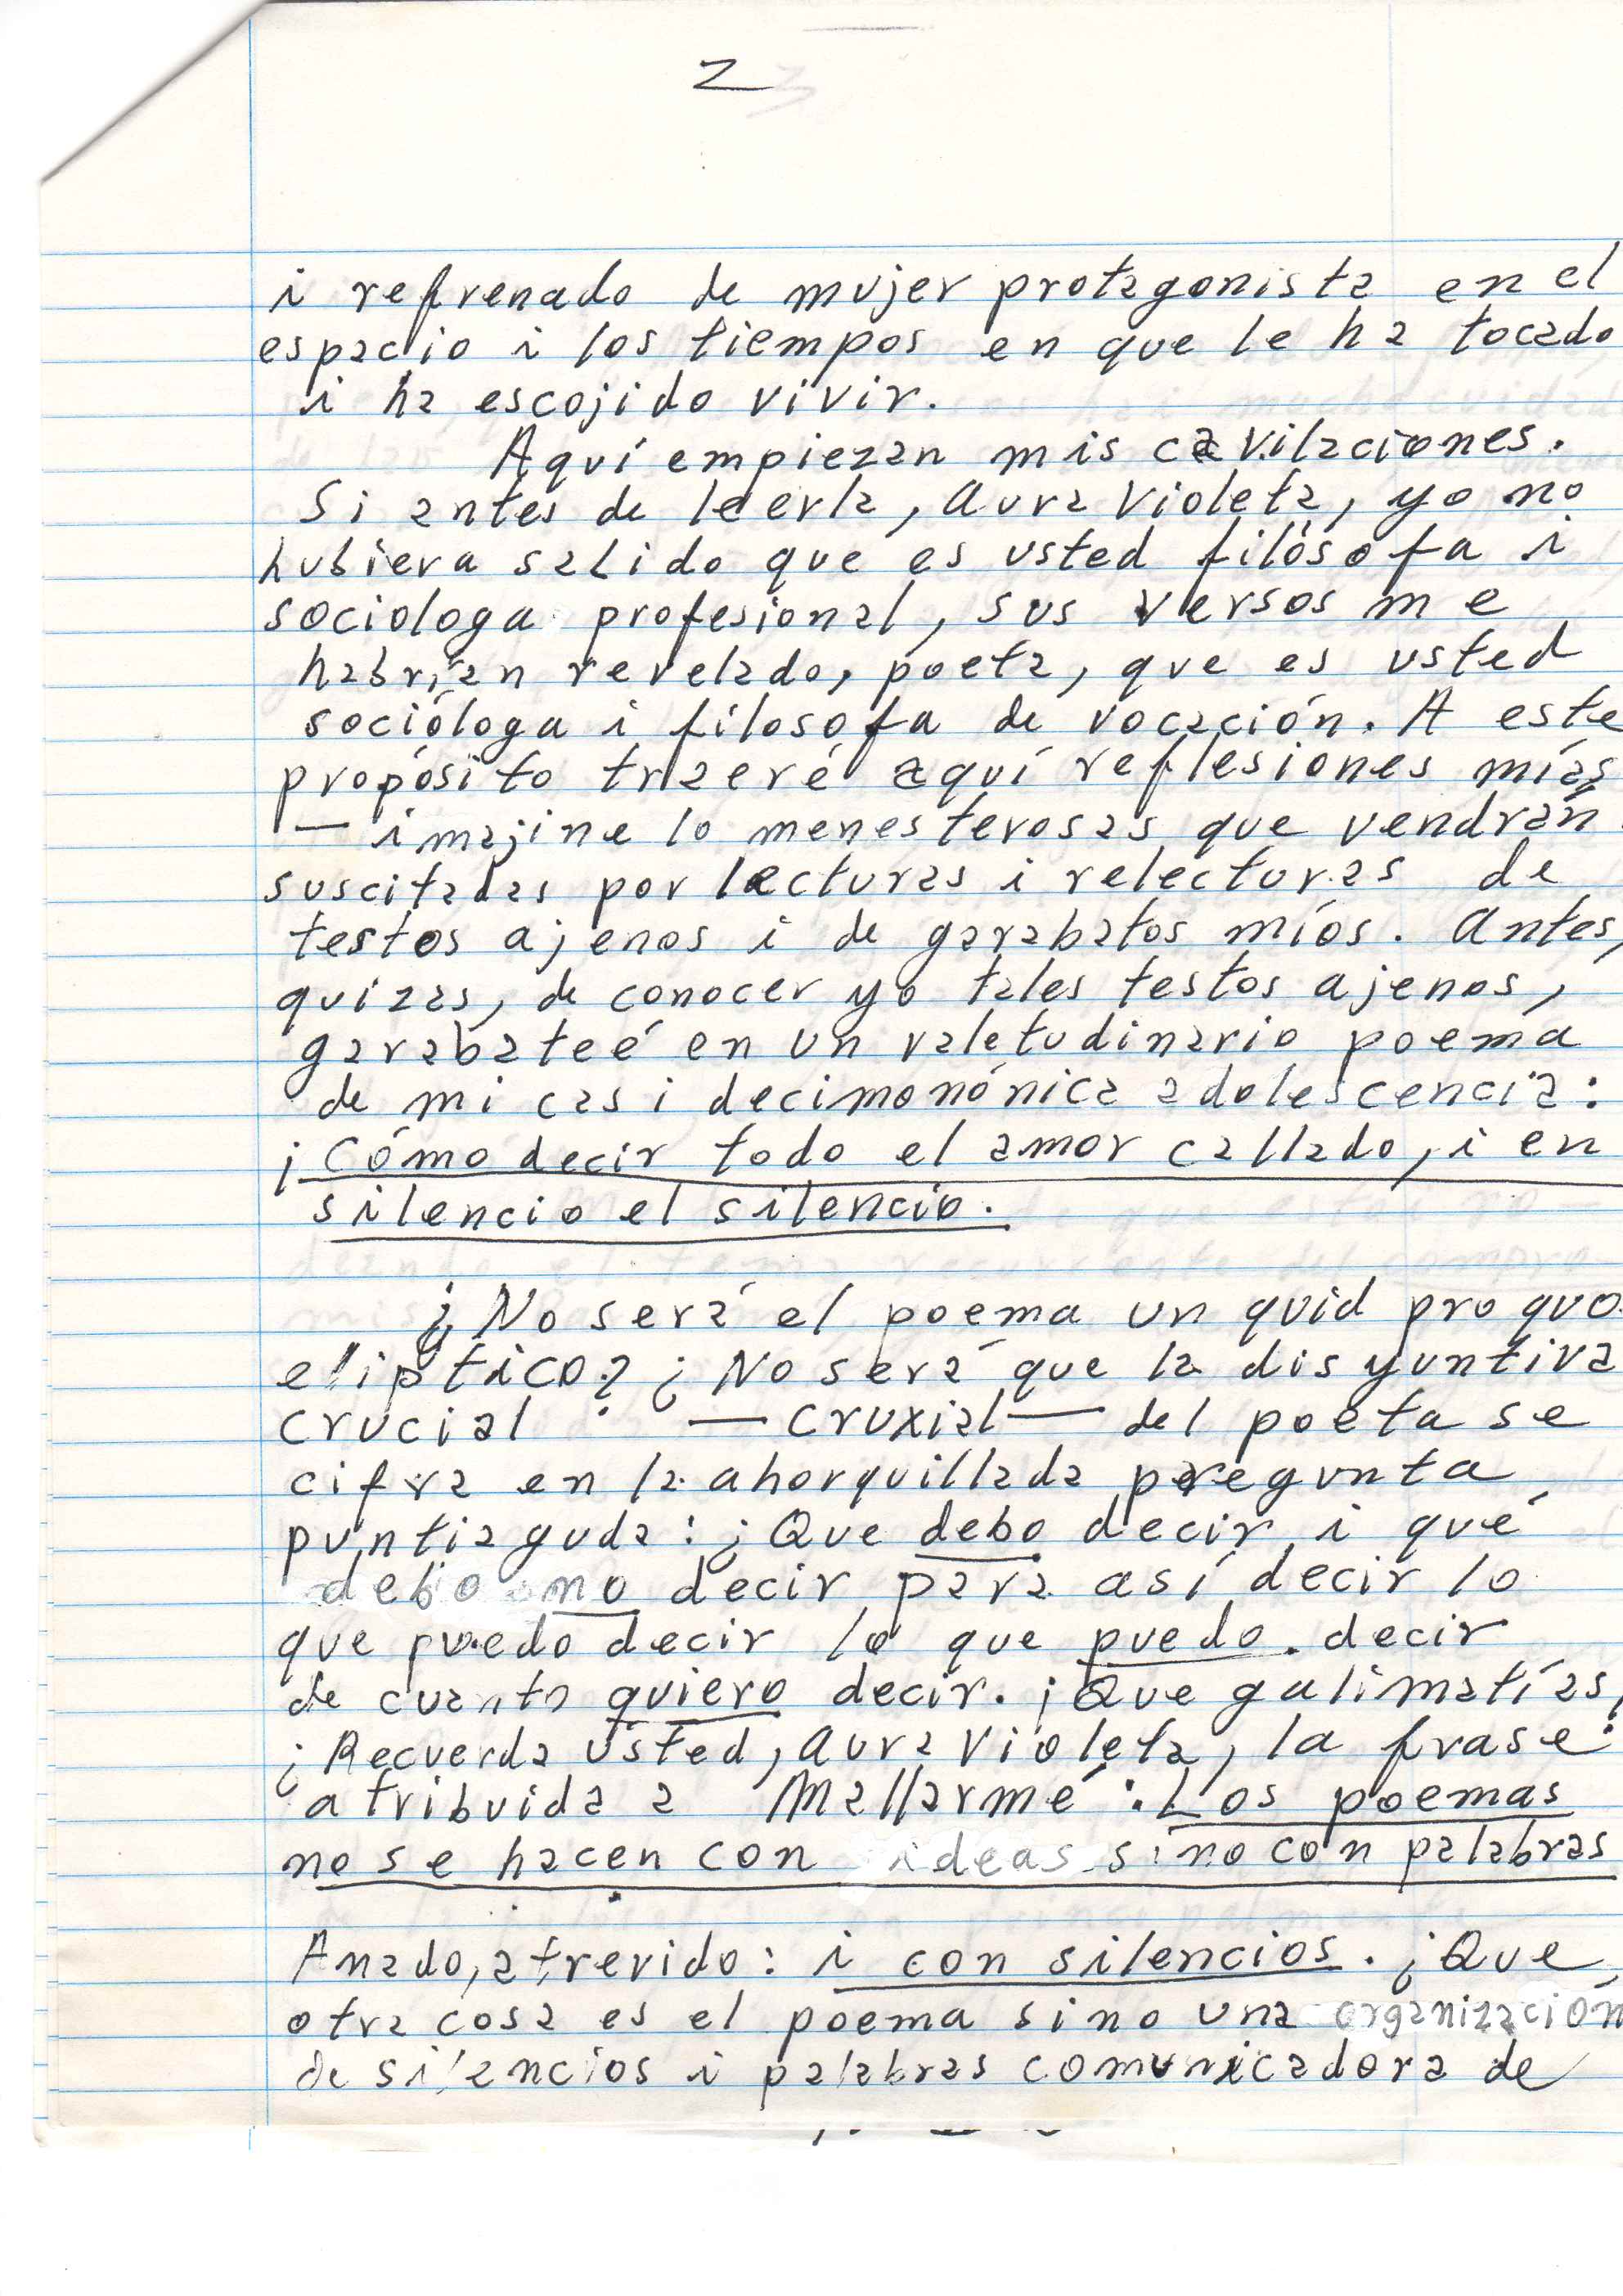 2
i refrenado de mujer protagonista en el
espacio i los tiempos en que le ha tocado
i ha escojido vivir.
Aquí empiezan mis cavilaciones.
Si antes de leerla, Aura Violeta, yo no
hubiera sabido que es usted filósofa i
sociologa profesional, sus versos me
habrían revelado, poeta, que es usted
socióloga i filosofa de vocación. A este
propósito traeré aquí reflesiones mías
— imajine lo menesterosas que vendrán
suscitadas por lecturas i relecturas de
testos ajenos i de garabatos míos. Antes,
quizas, de conocer yo tales testos ajenos,
garabateé en un valetudinario poema
de mi casi decimonónica adolescencia:
¡Cómo decir todo el amor callado, i en
silencio el silencio.
¿No será el poema un quid pro quo
elíptico? ¿No será que la disyuntiva
crucial — cruxial — del poeta se
cifra en la ahorquillada pregunta
puntiaguda: ¿Que debo decir i qué
debo no decir para así decir lo
que puedo decir lo que puedo decir
de cuanto quiero decir. ¡Que galimatías!
¿Recuerda usted, Aura Violeta, la frase
atribuida a Mallarmé: Los poemas
no se hacen con ideas sino con palabras
Anado, atrevido: i con silencios. ¿Que
otra cosa es el poema sino una organización
de silencios i palabras comunicadora de